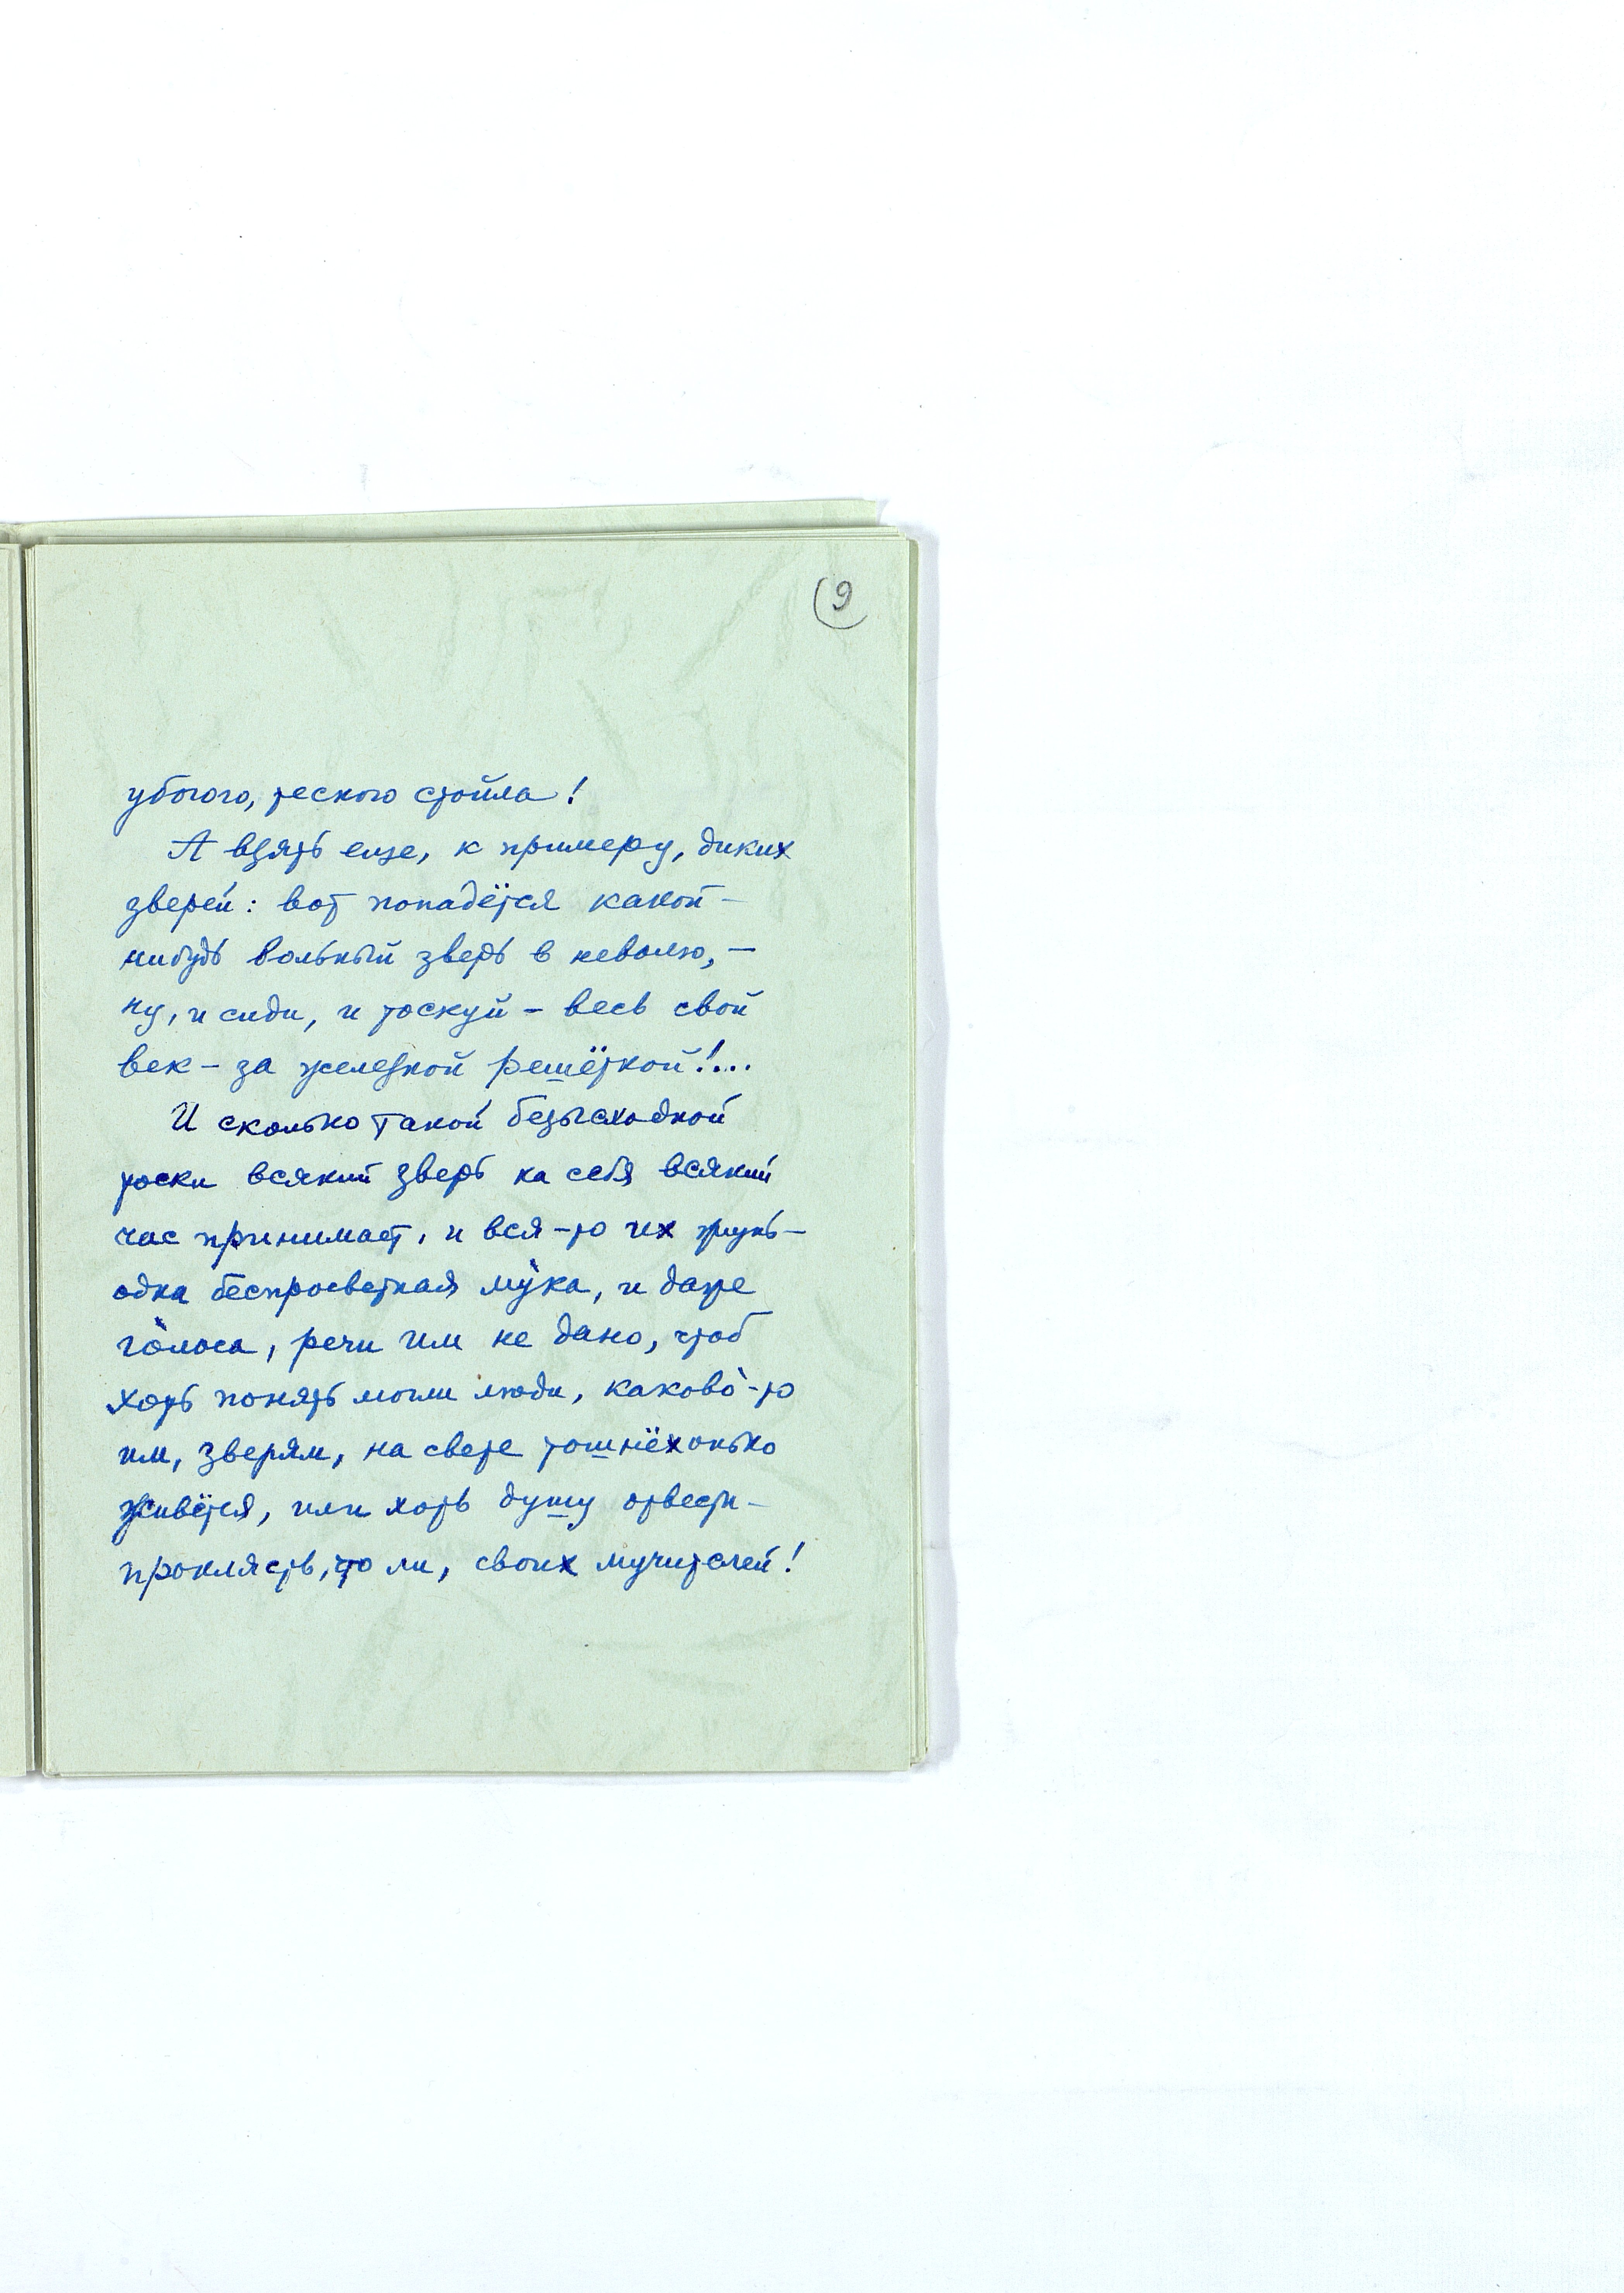 9
убогого, тесного стойла!
А взять еще, к примеру, диких
зверей: вот попадётся какой-
нибудь вольный зверь в неволю, –
ну, и сиди, и тоскуй – весь свой
век – за железной решёткой!...
И сколько такой безысходной
тоски всякий зверь на себя всякий
час принимает, и вся-то их жизнь –
одна беспросветная му́ка, и даже
го́лоса, речи им не дано, чтоб
хоть понять могли люди, каково́-то
им, зверям, на свете тошнёхонько
живётся, или хоть душу отвести –
проклясть, что ли, своих мучителей!